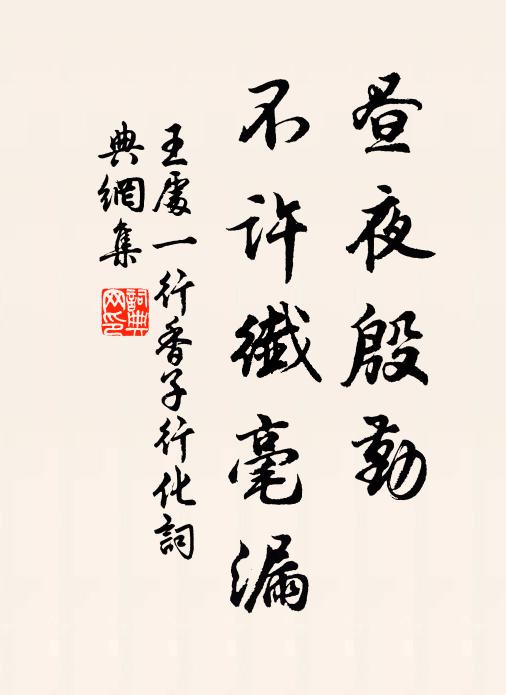 晝夜殷勤
不許纖毫漏
王處一行香子行化詞
典網集
詞典網印